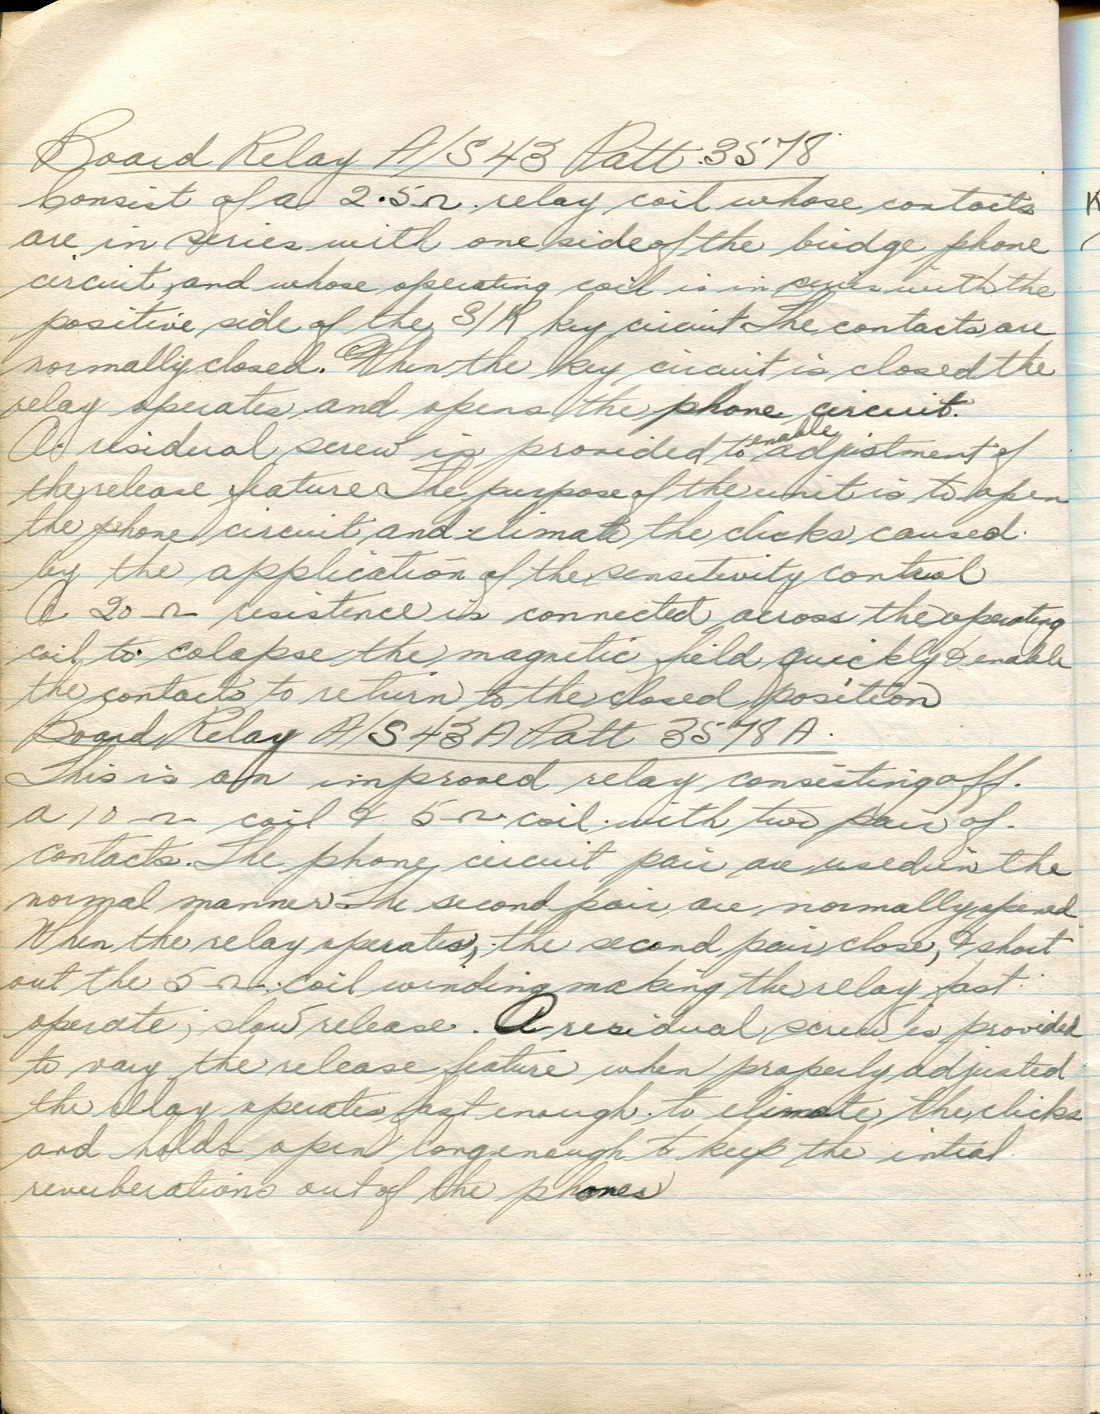 Board Relay A/S 43 Patt. 3578
Consist of a 2.5 Ω. relay coil whose contacts
are in series with one side of the bridge phone
circuit, and whose operating coil is in series with the
positive side of the S/R key circuit. The contacts are
normally closed. When the key circuit is closed the
relay operates and opens the phone circuit.
A residual screw is provided to enable adjustment of
the release feature. The purpose of the unit is to open
the phone circuit and elimate the clicks caused
by the application of the sensitivity control
A 20 Ω resistence is connected across the operating
coil to colapse the magnetic field quickly & enable
the contacts to return to the closed position
Board Relay A/S 43A Patt 3578A.
This is an improved relay consisting off.
a 10 Ω coil & 5 Ω coil with two pair of
contacts. The phone circuit pair are used in the
normal manner. The second pair are normally opened
When the relay operates, the second pair close, & short
out the 5 Ω coil winding making the relay fast
operate, slow release. A residual screw is provided
to vary the release feature when properly adjusted
the relay operates fast enough to elimate the clicks
and holds open long enough to keep the intial
reverberations out of the phones
K